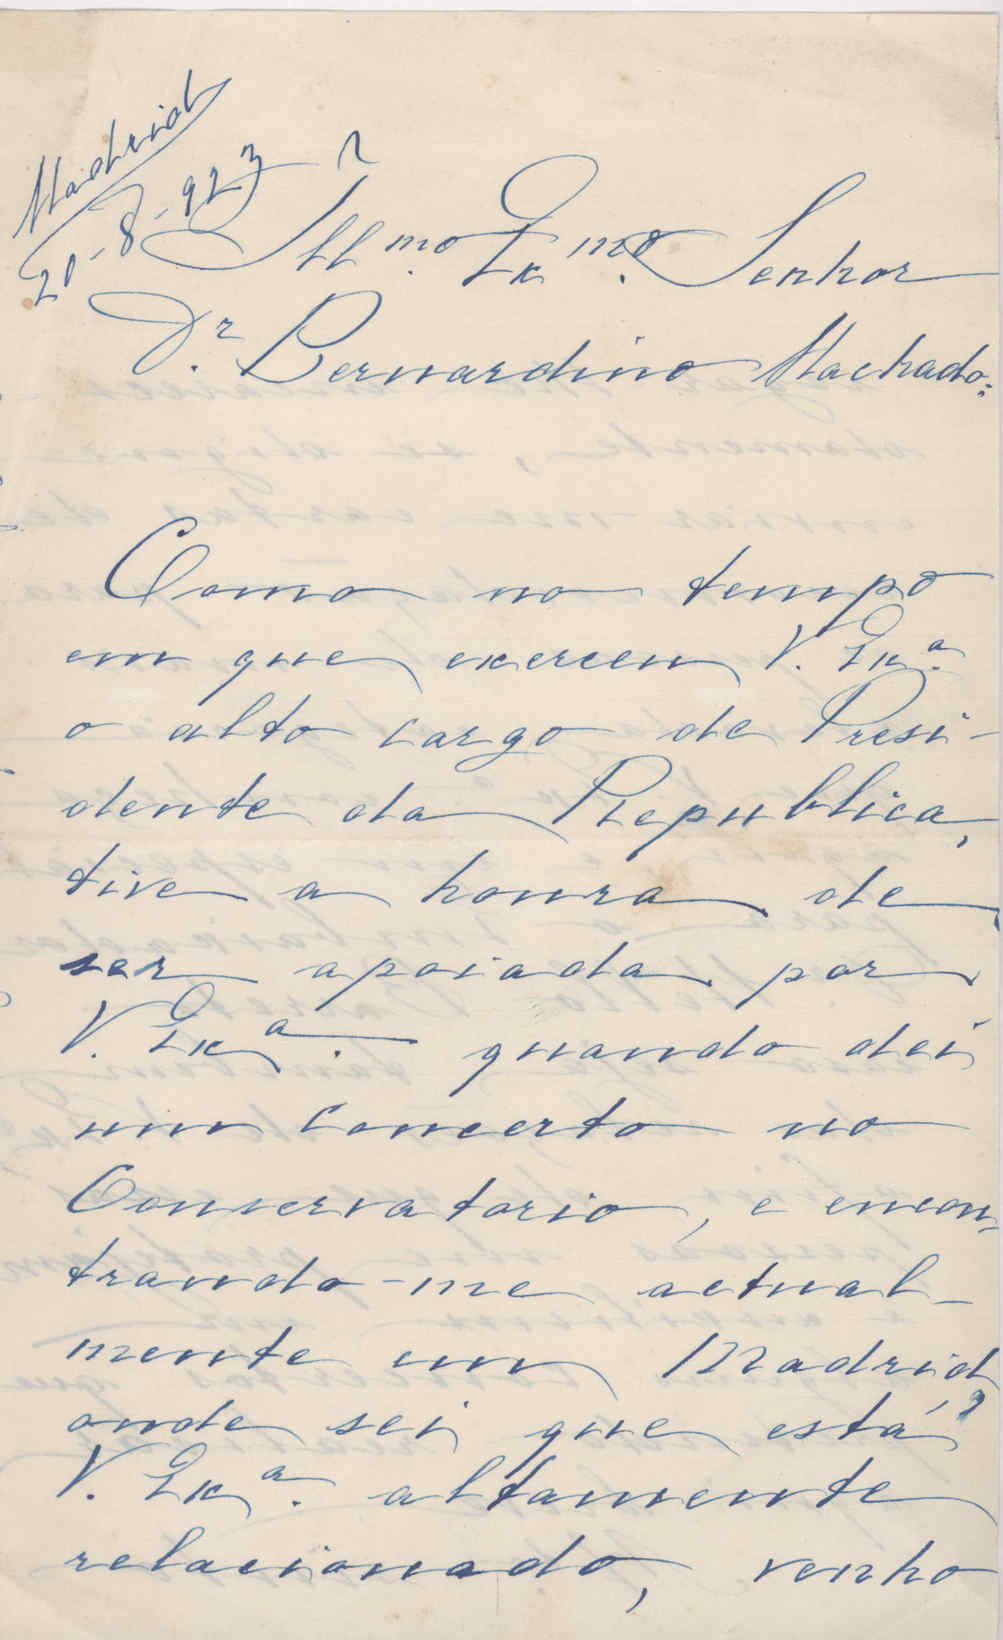 Madrid
20-8-923
Illmo. Exmo. Senhor
Dr. Bernardino Machado:
Como no tempo
em que exerceu V. Exa.
o alto cargo de Presi-
dente da Republica,
tive a honra de
ser apoiada por
V. Exa. quando dei
um concerto no
Conservatorio, e encon-
trando-me actual-
mente em Madrid,
onde sei que está
V. Exa. altamente
relacionado, venho